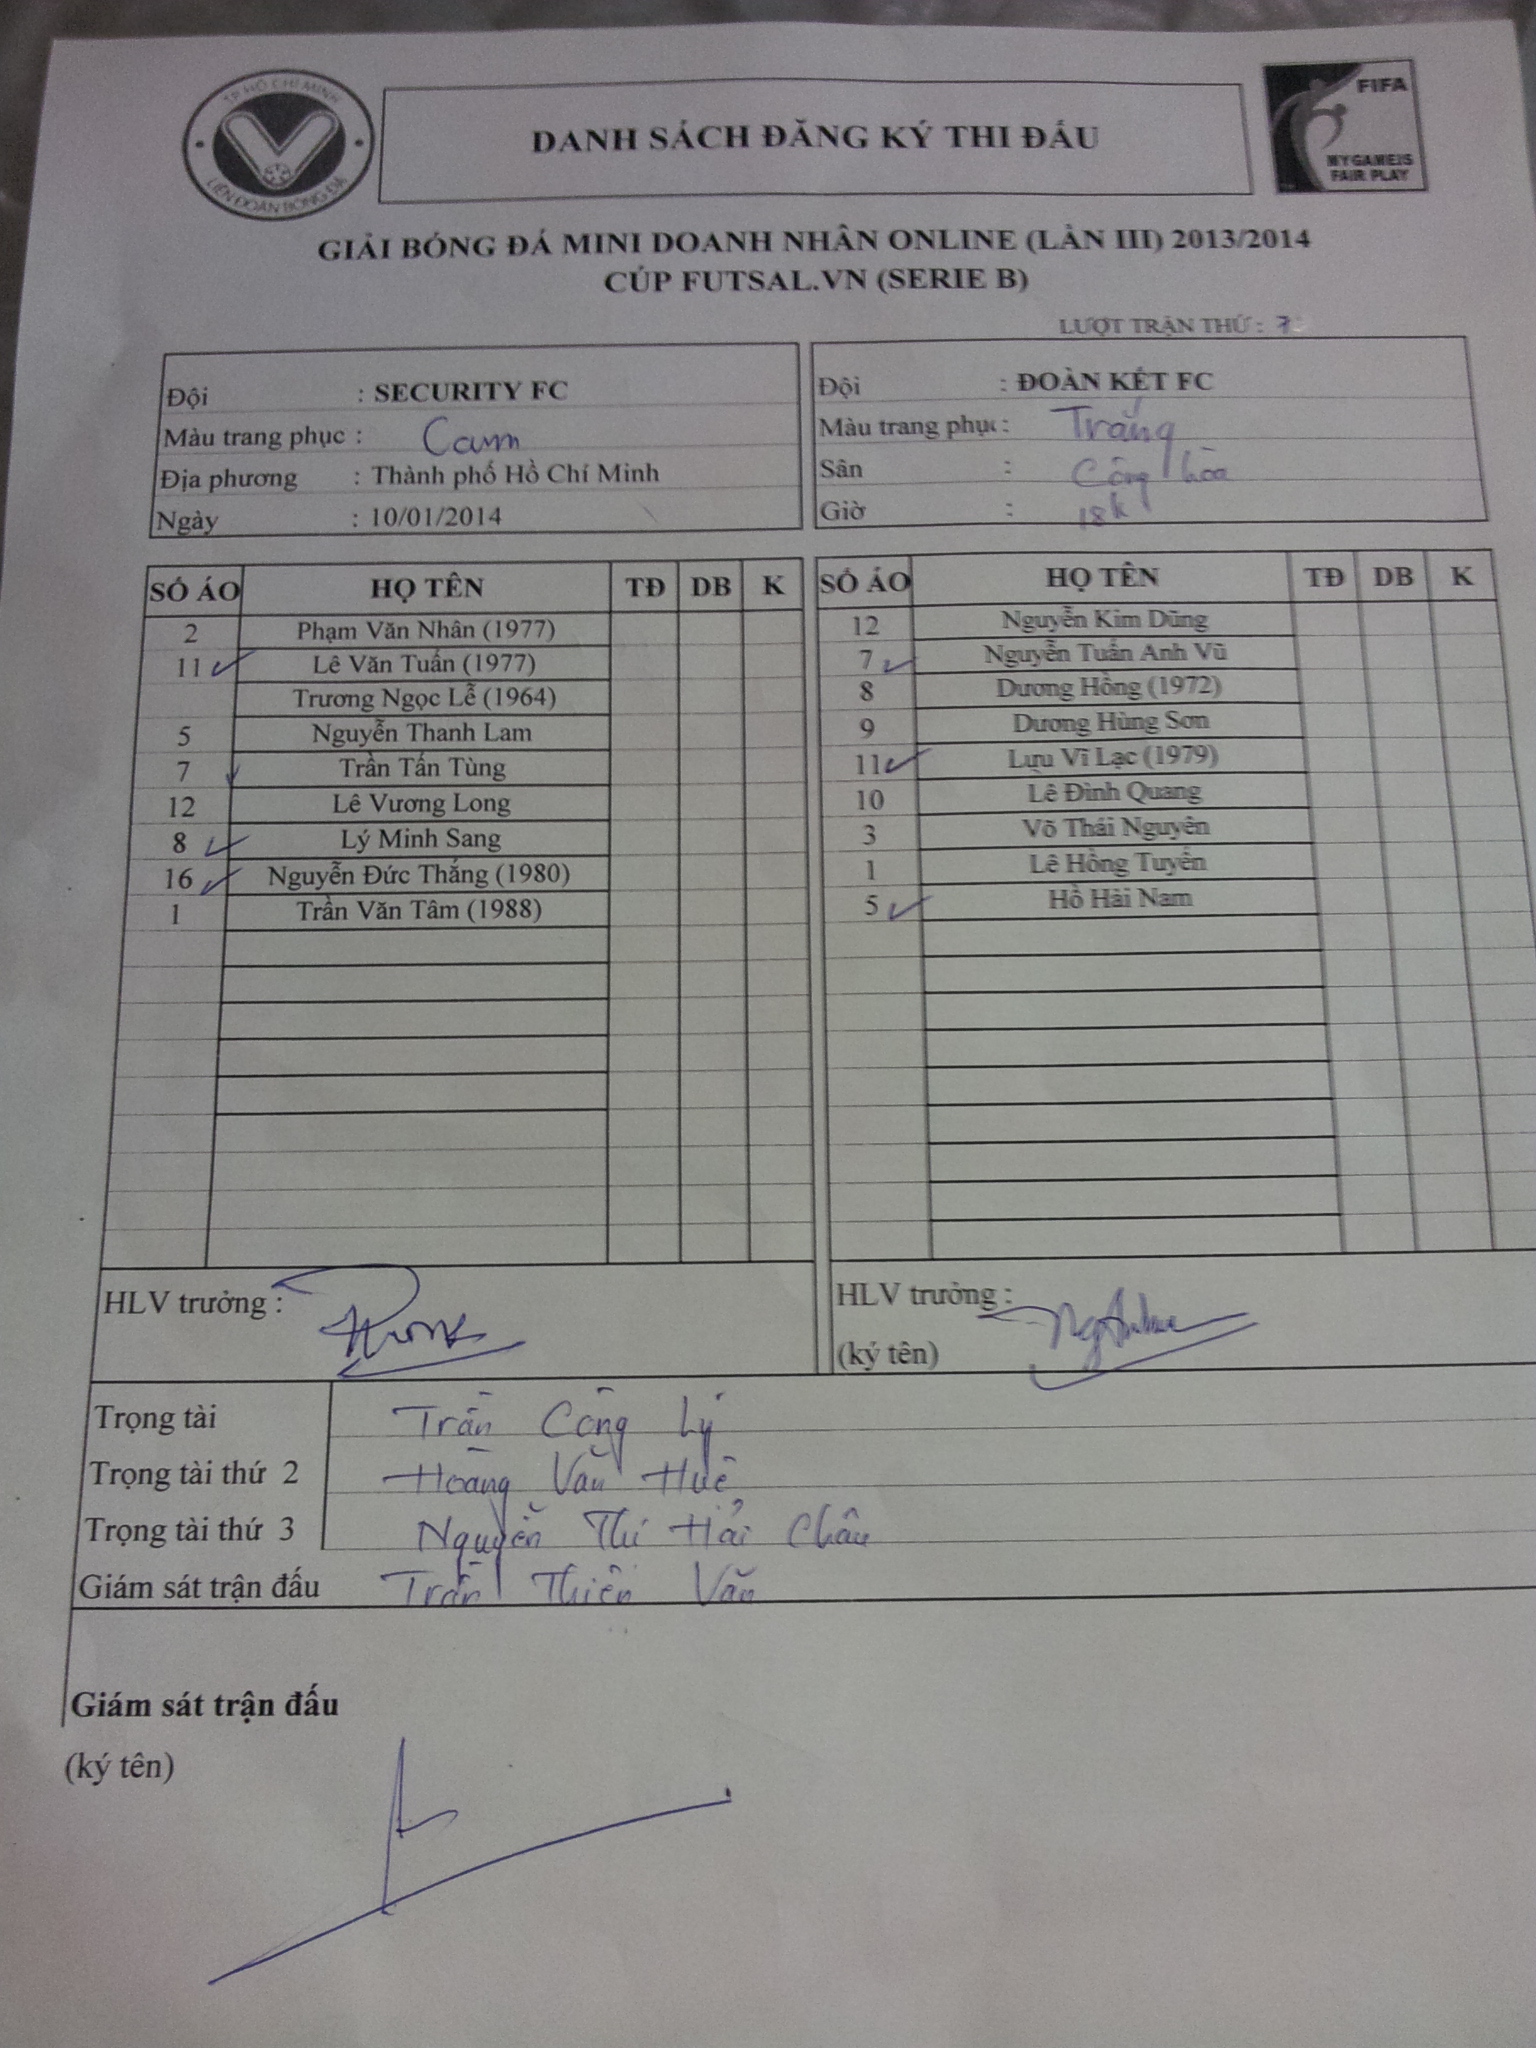 TP HỒ CHÍ MINH
LIÊN ĐOÀN BÓNG ĐÁ
DANH SÁCH ĐĂNG KÝ THI ĐẤU
FIFA
MY GAME IS
FAIR PLAY
GIẢI BÓNG ĐÁ MINI DOANH NHÂN ONLINE (LẦN III) 2013/2014
CÚP FUTSAL.VN (SERIE B)
LƯỢT TRẬN THỨ : 7
Đội : SECURITY FC
Màu trang phục : Cam
Địa phương : Thành phố Hồ Chí Minh
Ngày : 10/01/2014
Đội : ĐOÀN KẾT FC
Màu trang phục : Trắng
Sân : Cộng hòa
Giờ : 18h
SỐ ÁO HỌ TÊN TĐ DB K
2 Phạm Văn Nhân (1977)
11 Lê Văn Tuấn (1977)
Trương Ngọc Lễ (1964)
5 Nguyễn Thanh Lam
7 Trần Tấn Tùng
12 Lê Vương Long
8 Lý Minh Sang
16 Nguyễn Đức Thắng (1980)
1 Trần Văn Tâm (1988)
SỐ ÁO HỌ TÊN TĐ DB K
12 Nguyễn Kim Dũng
7 Nguyễn Tuấn Anh Vũ
8 Dương Hồng (1972)
9 Dương Hùng Sơn
11 Lưu Vĩ Lạc (1979)
10 Lê Đình Quang
3 Võ Thái Nguyên
1 Lê Hồng Tuyến
5 Hồ Hải Nam
HLV trưởng :
HLV trưởng :
(ký tên)
Trọng tài Trần Công Lý
Trọng tài thứ 2 Hoàng Văn Huê
Trọng tài thứ 3 Nguyễn Thị Hải Châu
Giám sát trận đấu Trần Thiên Văn
Giám sát trận đấu
(ký tên)